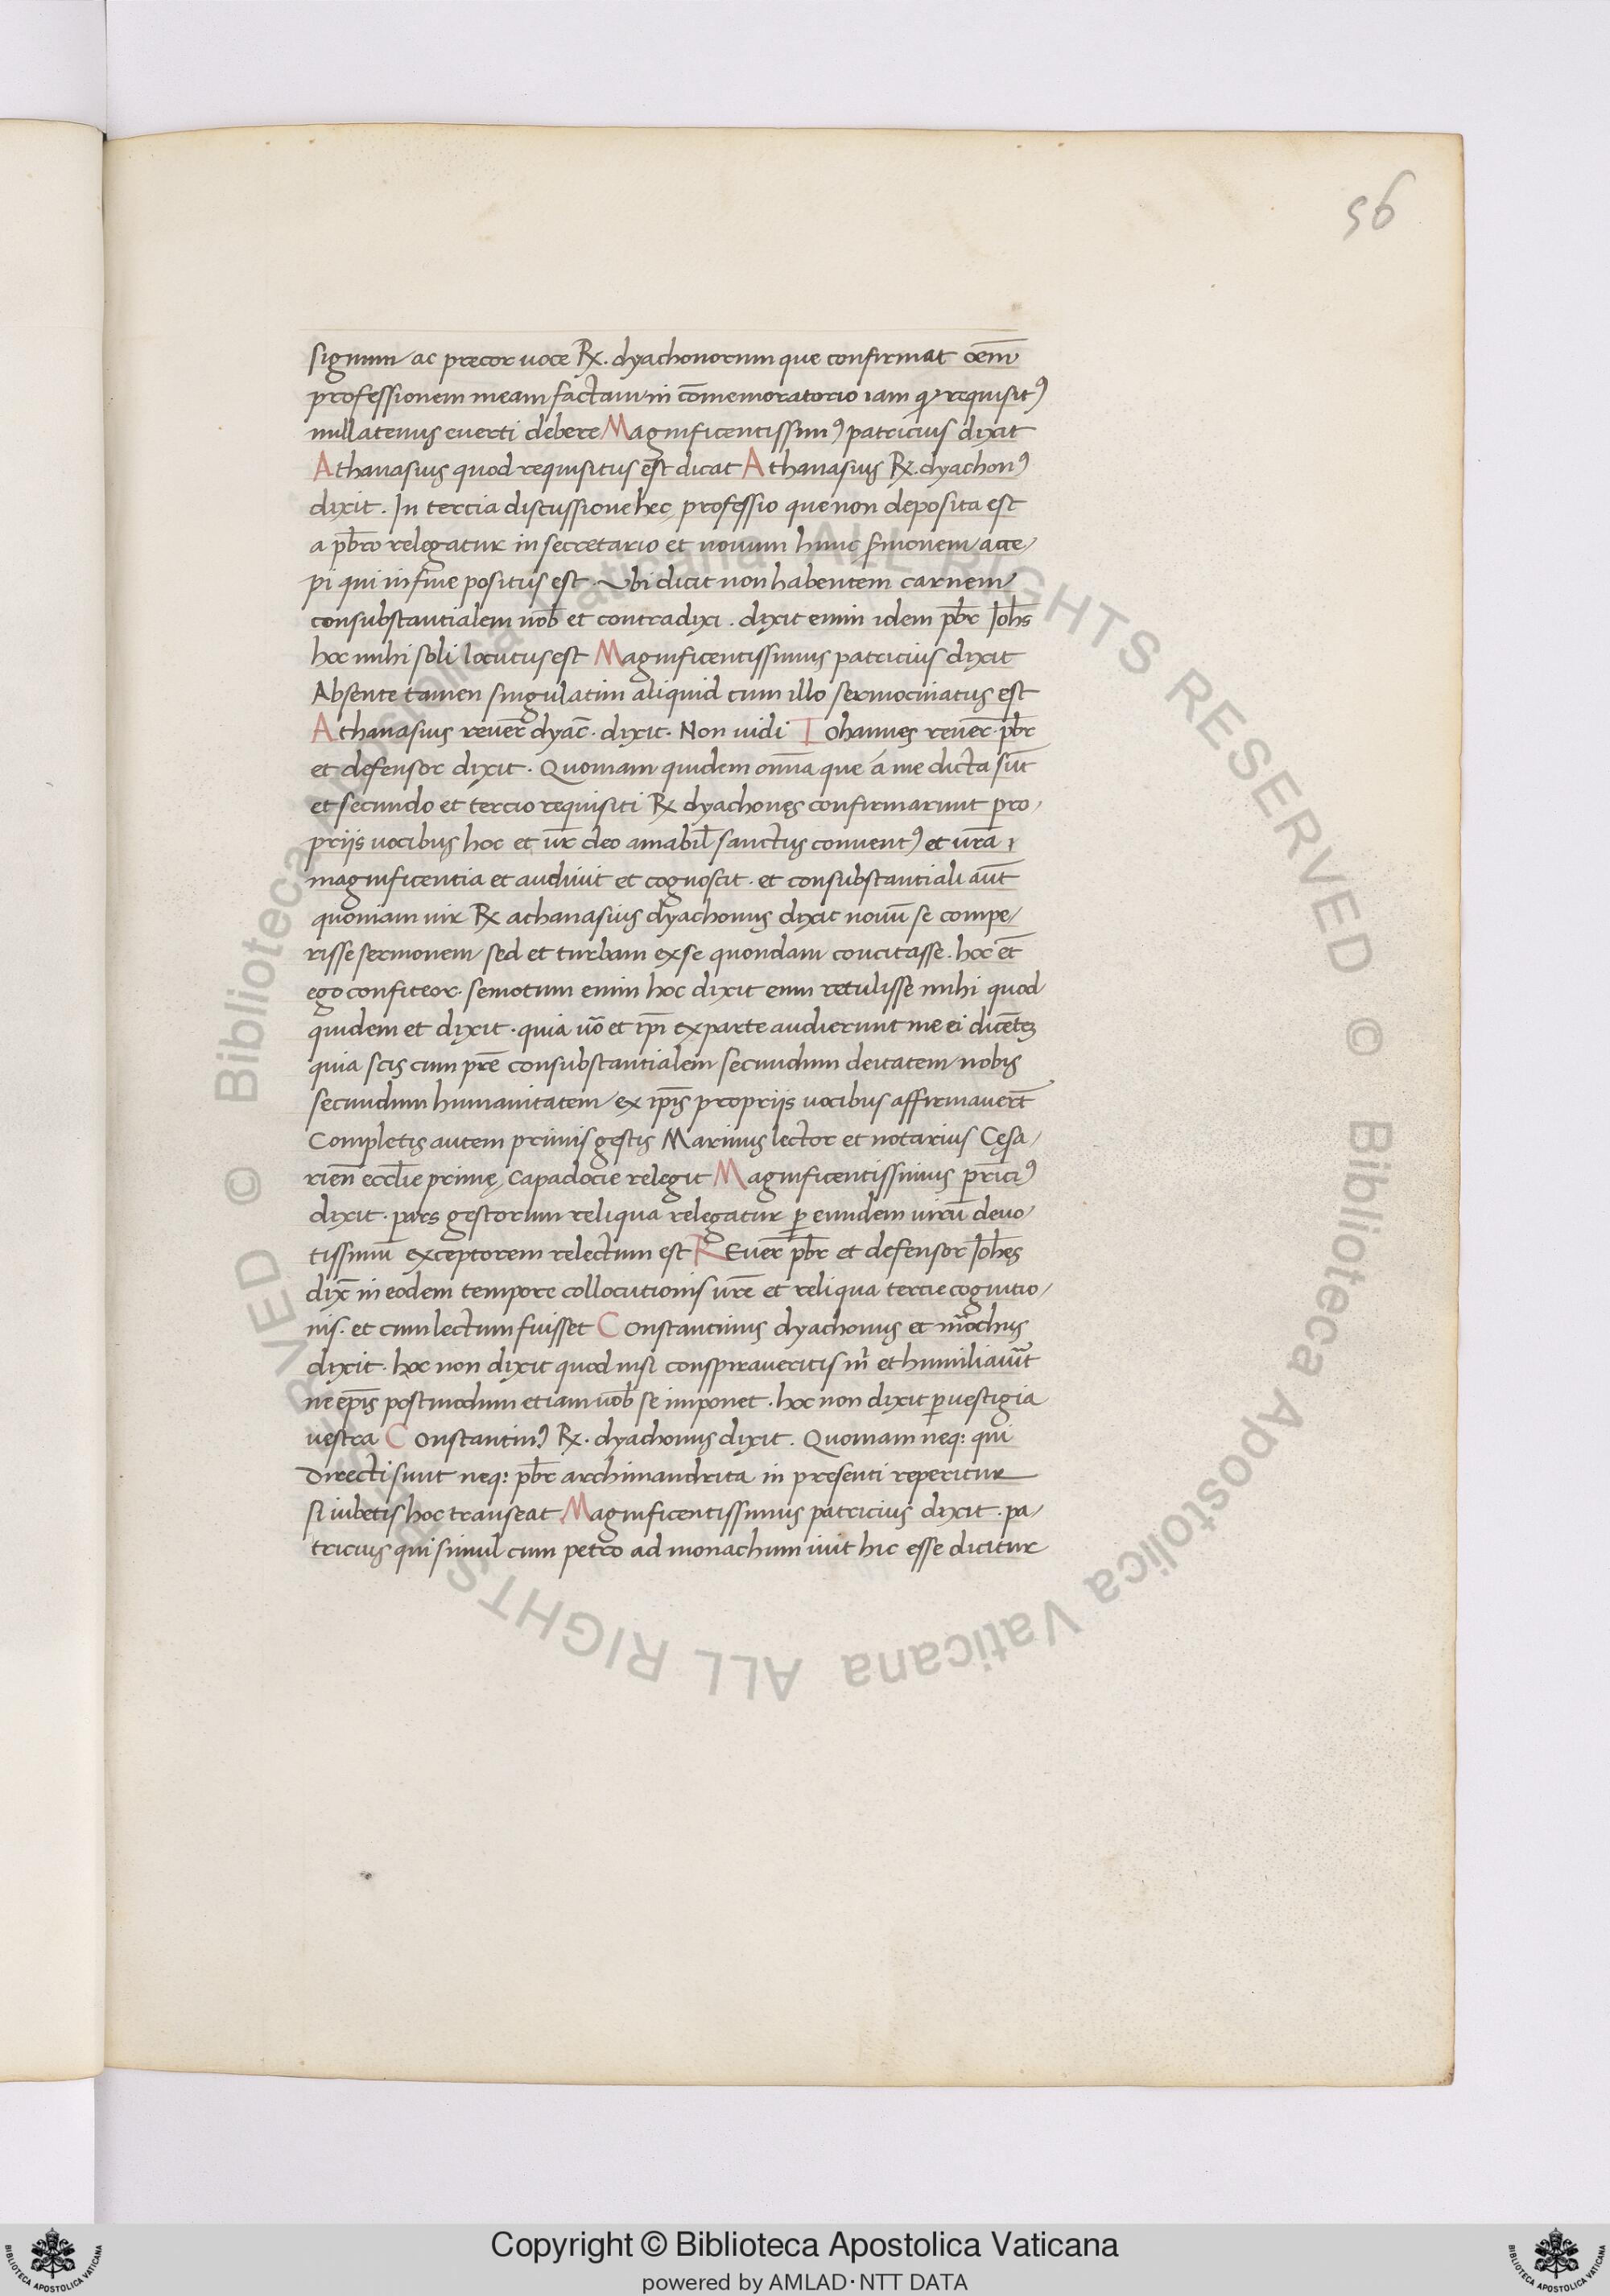 56
signum ac precor uoce Rx. dyachonorum que confirmat oēm
professionem meam factam in cōmemoratorio iam qꝫ requisitꝰ
nullatenus euerti debere Magnificentissimꝰ patricius dixit
Athanasius quod requisitus est dicat Athanasius Rx. dyachonꝰ
dixit. In tercia discussione hec professio que non deposita est
a pb̄ro relegatur in secretario et nouum hunc ẜmonem acce/
pi qui in fine positus est. Vbi dicit non habentem carnem
consubstantialem nob̄ et contradixi. dixit enim idem pb̄r Joh̄s
hoc mihi soli locutus est Magnificentissimus patricius dixit
Absente tamen singulatim aliquid cum illo sermocinatus est
Athanasius reuer̄ dyac̄. dixit. Non uidi Iohannes reuer̄ pb̄r
et defensor dixit. Quoniam quidem om̄ia que á me dicta sūt
et secundo et tercio requisiti Rx dyachones confirmarunt pro/
priis uocibus hoc et ur̄ deo amabil̄ sanctus conuentꝰ et ur̄a
magnificentia et audiuit et cognoscit. et consubstantiali aūt
quoniam uir Rx athanasius dyachonus dixit nouū se compe/
risse sermonem sed et turbam ex se quondam concitasse. hoc et̄
ego confiteor. semotum enim hoc dixit eum retulisse mihi quod
quidem et dixit. quia uō et ip̄i ex parte audierunt me ei dicētē
quia scis cum pr̄e consubstantialem secundum deitatem nobis
secundum humanitatem ex ip̄is propriis uocibus affirmauer̄t
Completis autem primis gestis Marinus lector et notarius Cęsa/
rien̄ eccl̄ie primę Capadocie relegit Magnificentissimus pr̄iciꝰ
dixit. pars gestorum reliqua relegatur ꝑ eundem uirū deuo/
tissimū exceptorem relectum est REuer̄ pb̄r et defensor Joh̄es
dix̄ in eodem tempore collocutionis ur̄e et reliqua tercie cognitio/
nis. et cum lectum fuisset Constantinus dyachonus et mōchus
dixit. hoc non dixit quod nisi conspiraueritis m̄ et humiliauīt
ne ep̄is postmodum etiam uob̄ se imponet. hoc non dixit ꝑ uestigia
uestra Constantinꝰ Rx. dyachonus dixit. Quoniam neq: qui
directi sunt neq: pb̄r archimandrita in presenti reperitur
si iubetis hoc transeat Magnificentissimus patricius dixit. pa/
tricius qui simul cum petro ad monachum iuit hic esse dicitur
© Biblioteca Apostolica Vaticana ALL RIGHTS RESERVED
© Biblioteca Apostolica Vaticana ALL RIGHTS RESERVED
Copyright © Biblioteca Apostolica Vaticana
powered by AMLAD·NTT DATA
BIBLIOTECA APOSTOLICA VATICANA
BIBLIOTECA APOSTOLICA VATICANA